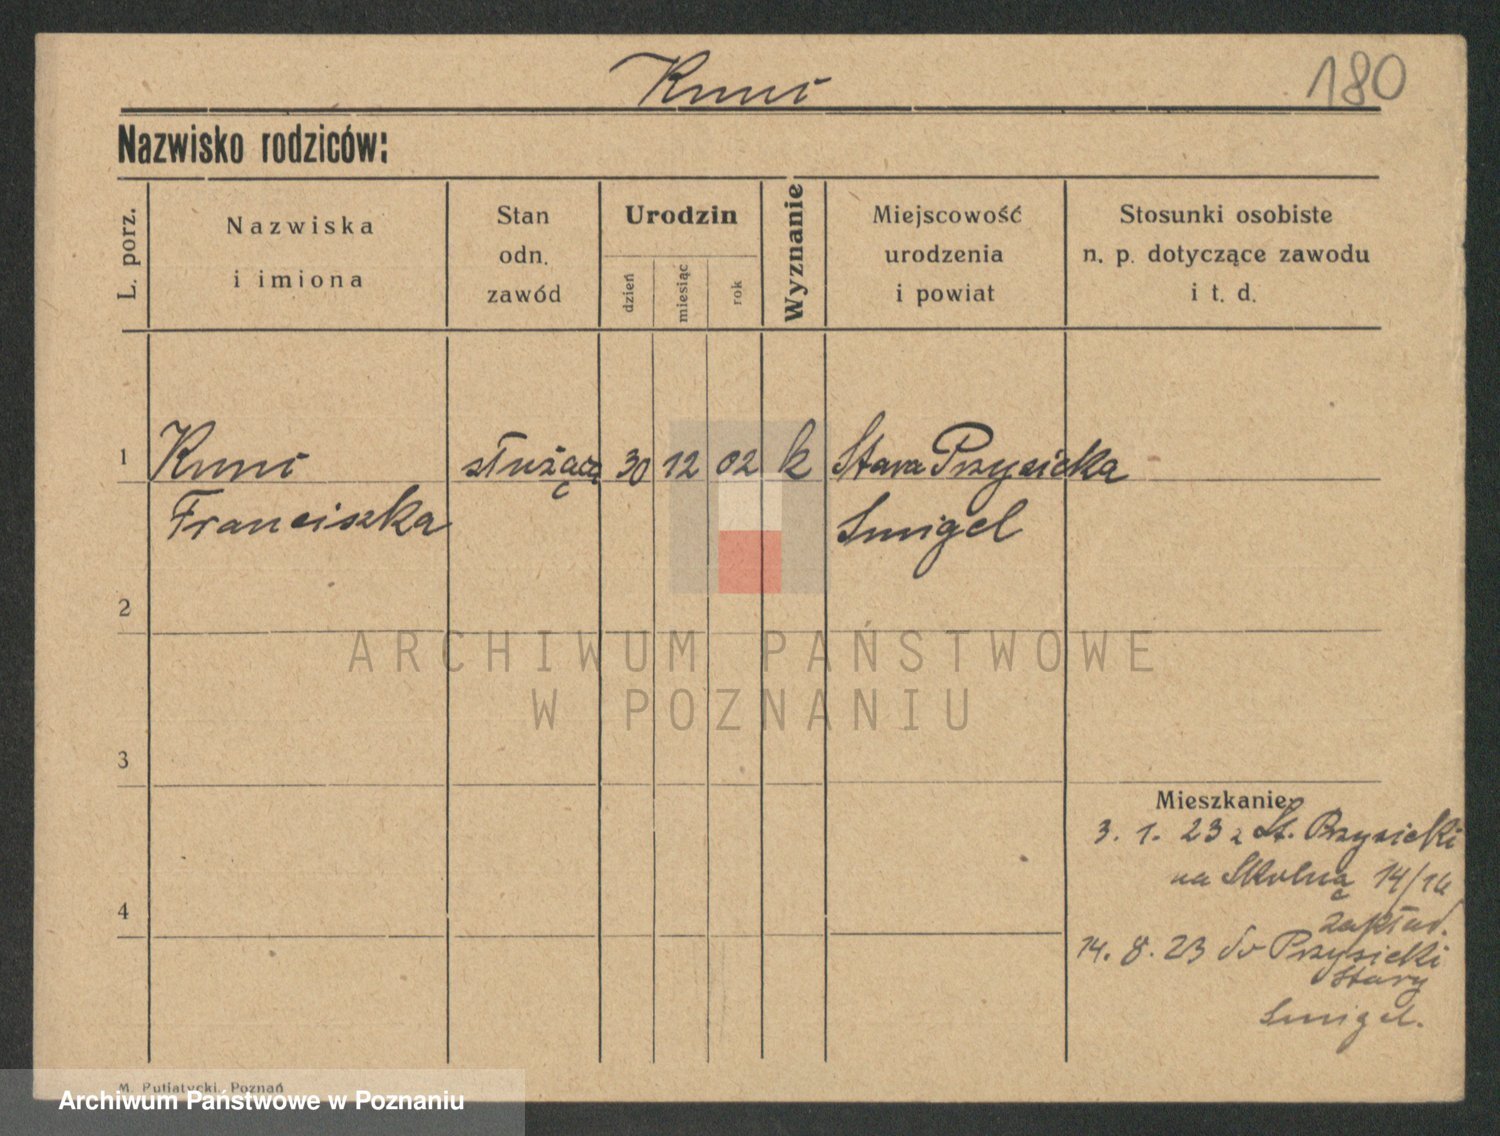 Kuni
180
Nazwisko rodziców:
L. porz.
Nazwiska
i imiona
Stan
odn.
zawód
Urodzin
dzień
miesiąc
rok
Wyznanie
Miejscowość
urodzenia
i powiat
Stosunki osobiste
n. p. dotyczące zawodu
i t. d.
1
Kuni
Franciszka
służącą
30
12
02
k
Stara Przysieka
Smigel
2
ARCHIWUM PAŃSTWOWE
W POZNANIU
3
4
Mieszkanie:
3. 1. 23 z St. Przysieki
na Skolną 14/16
zakład.
14. 8. 23 do Przysieki
Stary
Smigel.
M. Putiatycki, Poznań
Archiwum Państwowe w Poznaniu